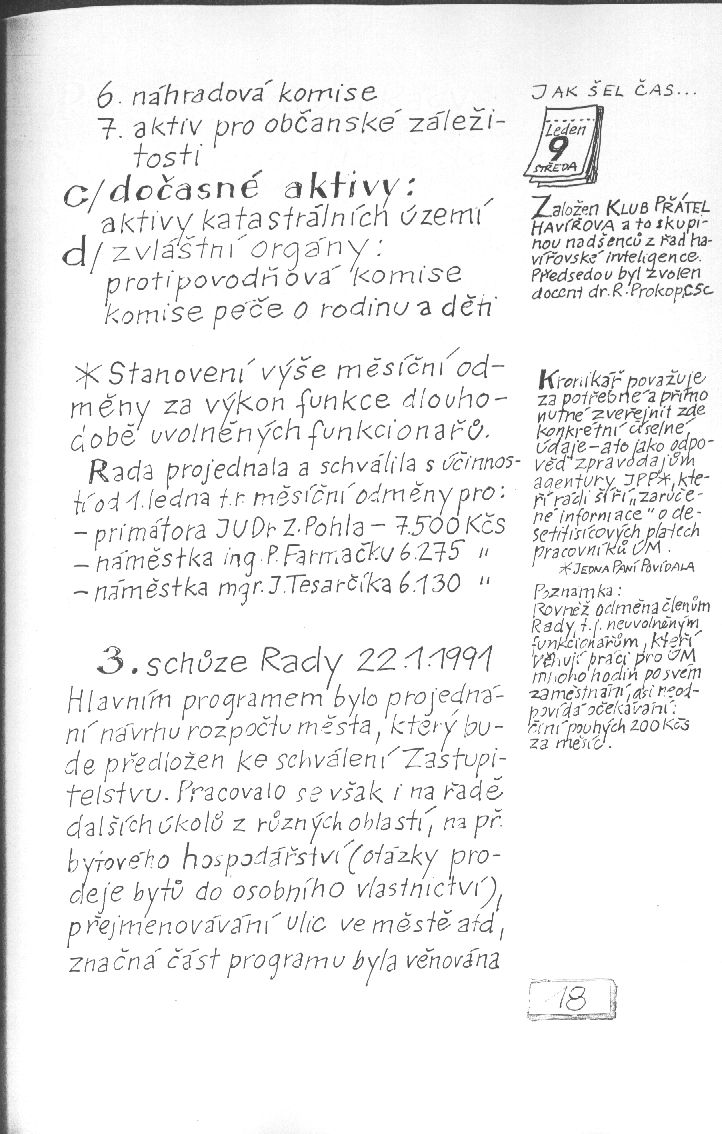 6. náhradová komise
7. aktiv pro občanské záleži-
tosti
c/dočasné aktivy:
aktivy katastrálních území
d/zvláštní orgány:
protipovodňová komise
komise péče o rodinu a děti
* Stanovení výše měsíční od-
měny za výkon funkce dlouho-
době uvolněných funkcionářů.
Rada projednala a schválila s účinnos-
tí od 1. ledna t.r. měsíční odměny pro:
- primátora JUDr Z. Pohla - 7.500 Kčs
- náměstka ing. P. Farmačku 6.275 "
- náměstka mgr. J. Tesarčíka 6.130 "
3. schůze Rady 22.1.1991
Hlavním programem bylo projedná-
ní návrhu rozpočtu města, který bu-
de předložen ke schválení Zastupi-
telstvu. Pracovalo se však i na řadě
dalších úkolů z různých oblastí, na př.
bytového hospodářství (otázky pro-
deje bytů do osobního vlastnictví),
přejmenovávání ulic ve městě atd,
značná část programu byla věnována
JAK ŠEL ČAS...
Leden
9
STŘEDA
Založen KLUB PŘÁTEL
HAVÍŘOVA a to skupi-
nou nadšenců z řad ha-
vířovské inteligence.
Předsedou byl zvolen
docent dr. R. Prokop, CSc
Kronikář považuje
za potřebné a přímo
nutné zveřejnit zde
konkrétní číselné
údaje - a to jako odpo-
věď zpravodajům
agentury JPP*, kte-
ří rádi šíří „zaruče-
né informace" o de-
setitisícových platech
pracovníků ÚM.
* JEDNA PANÍ POVÍDALA
Poznámka:
Rovněž odměna členům
Rady t.j. neuvolněným
funkcionářům, kteří
věnují práci pro ÚM
mnoho hodin po svém
zaměstnání, asi neod-
povídá očekávání:
činí pouhých 200 Kčs
za měsíc.
18